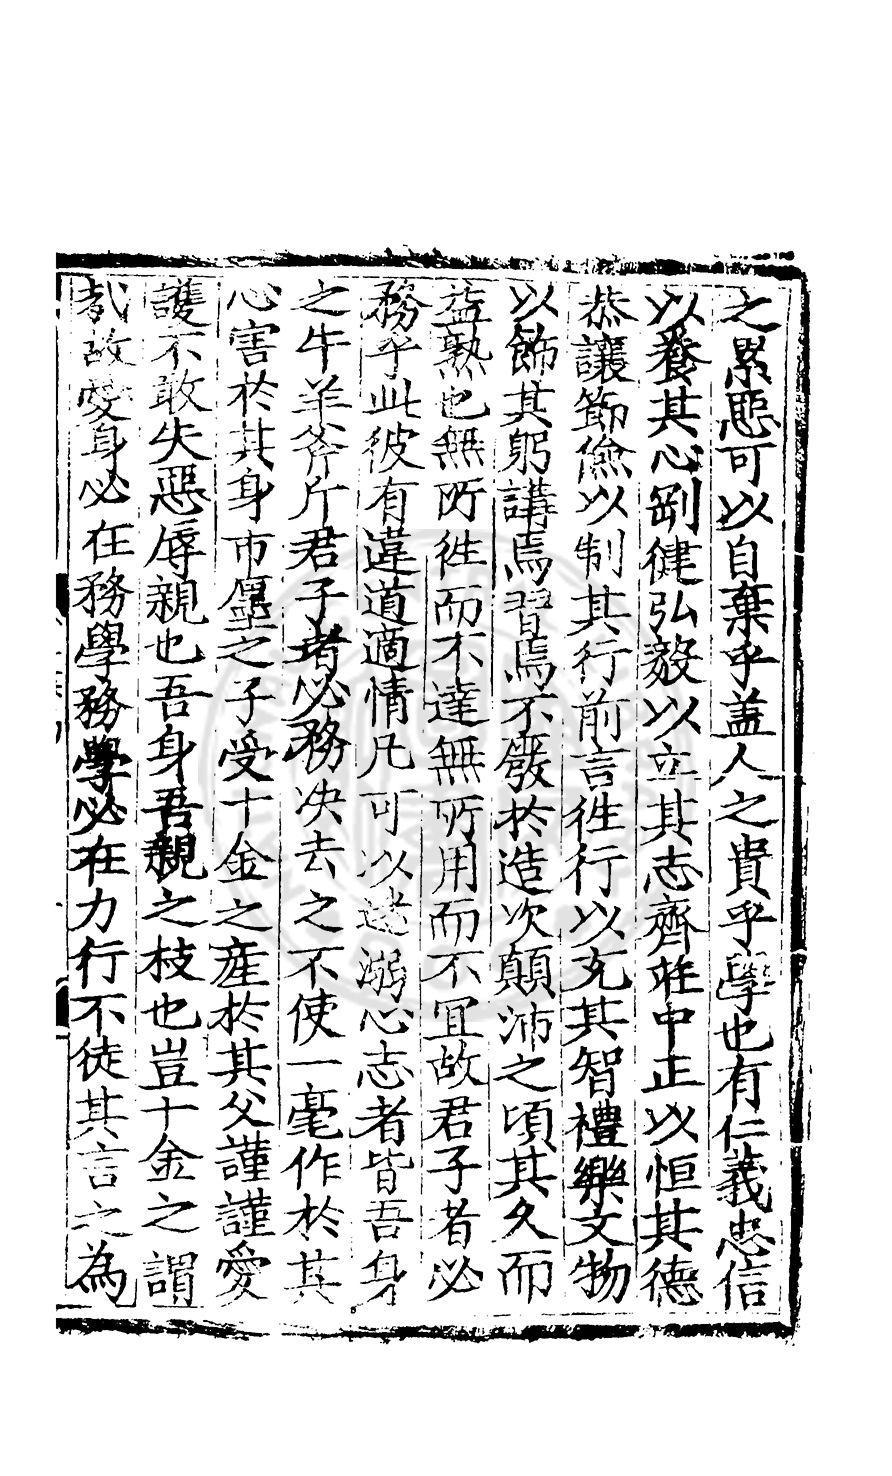 之累惡可以自棄乎盖人之貴乎學也有仁義忠信
以養其心剛健弘毅以立其志齊莊中正以恒其德
恭讓節儉以制其行前言徃行以充其智禮樂文物
以飾其躬講焉習焉不廢於造次顛沛之頃其久而
益熟也無所徃而不達無所用而不宜故君子者必
務乎此彼有違道適情凡可以迷溺心志者皆吾身
之牛羊斧斤君子者必務决去之不使一毫作於其
心害於其身市壥之子受十金之產於其父謹謹愛
護不敢失惡辱親也吾身吾親之枝也豈十金之謂
哉故愛身必在務學務學必在力行不徒其言之為